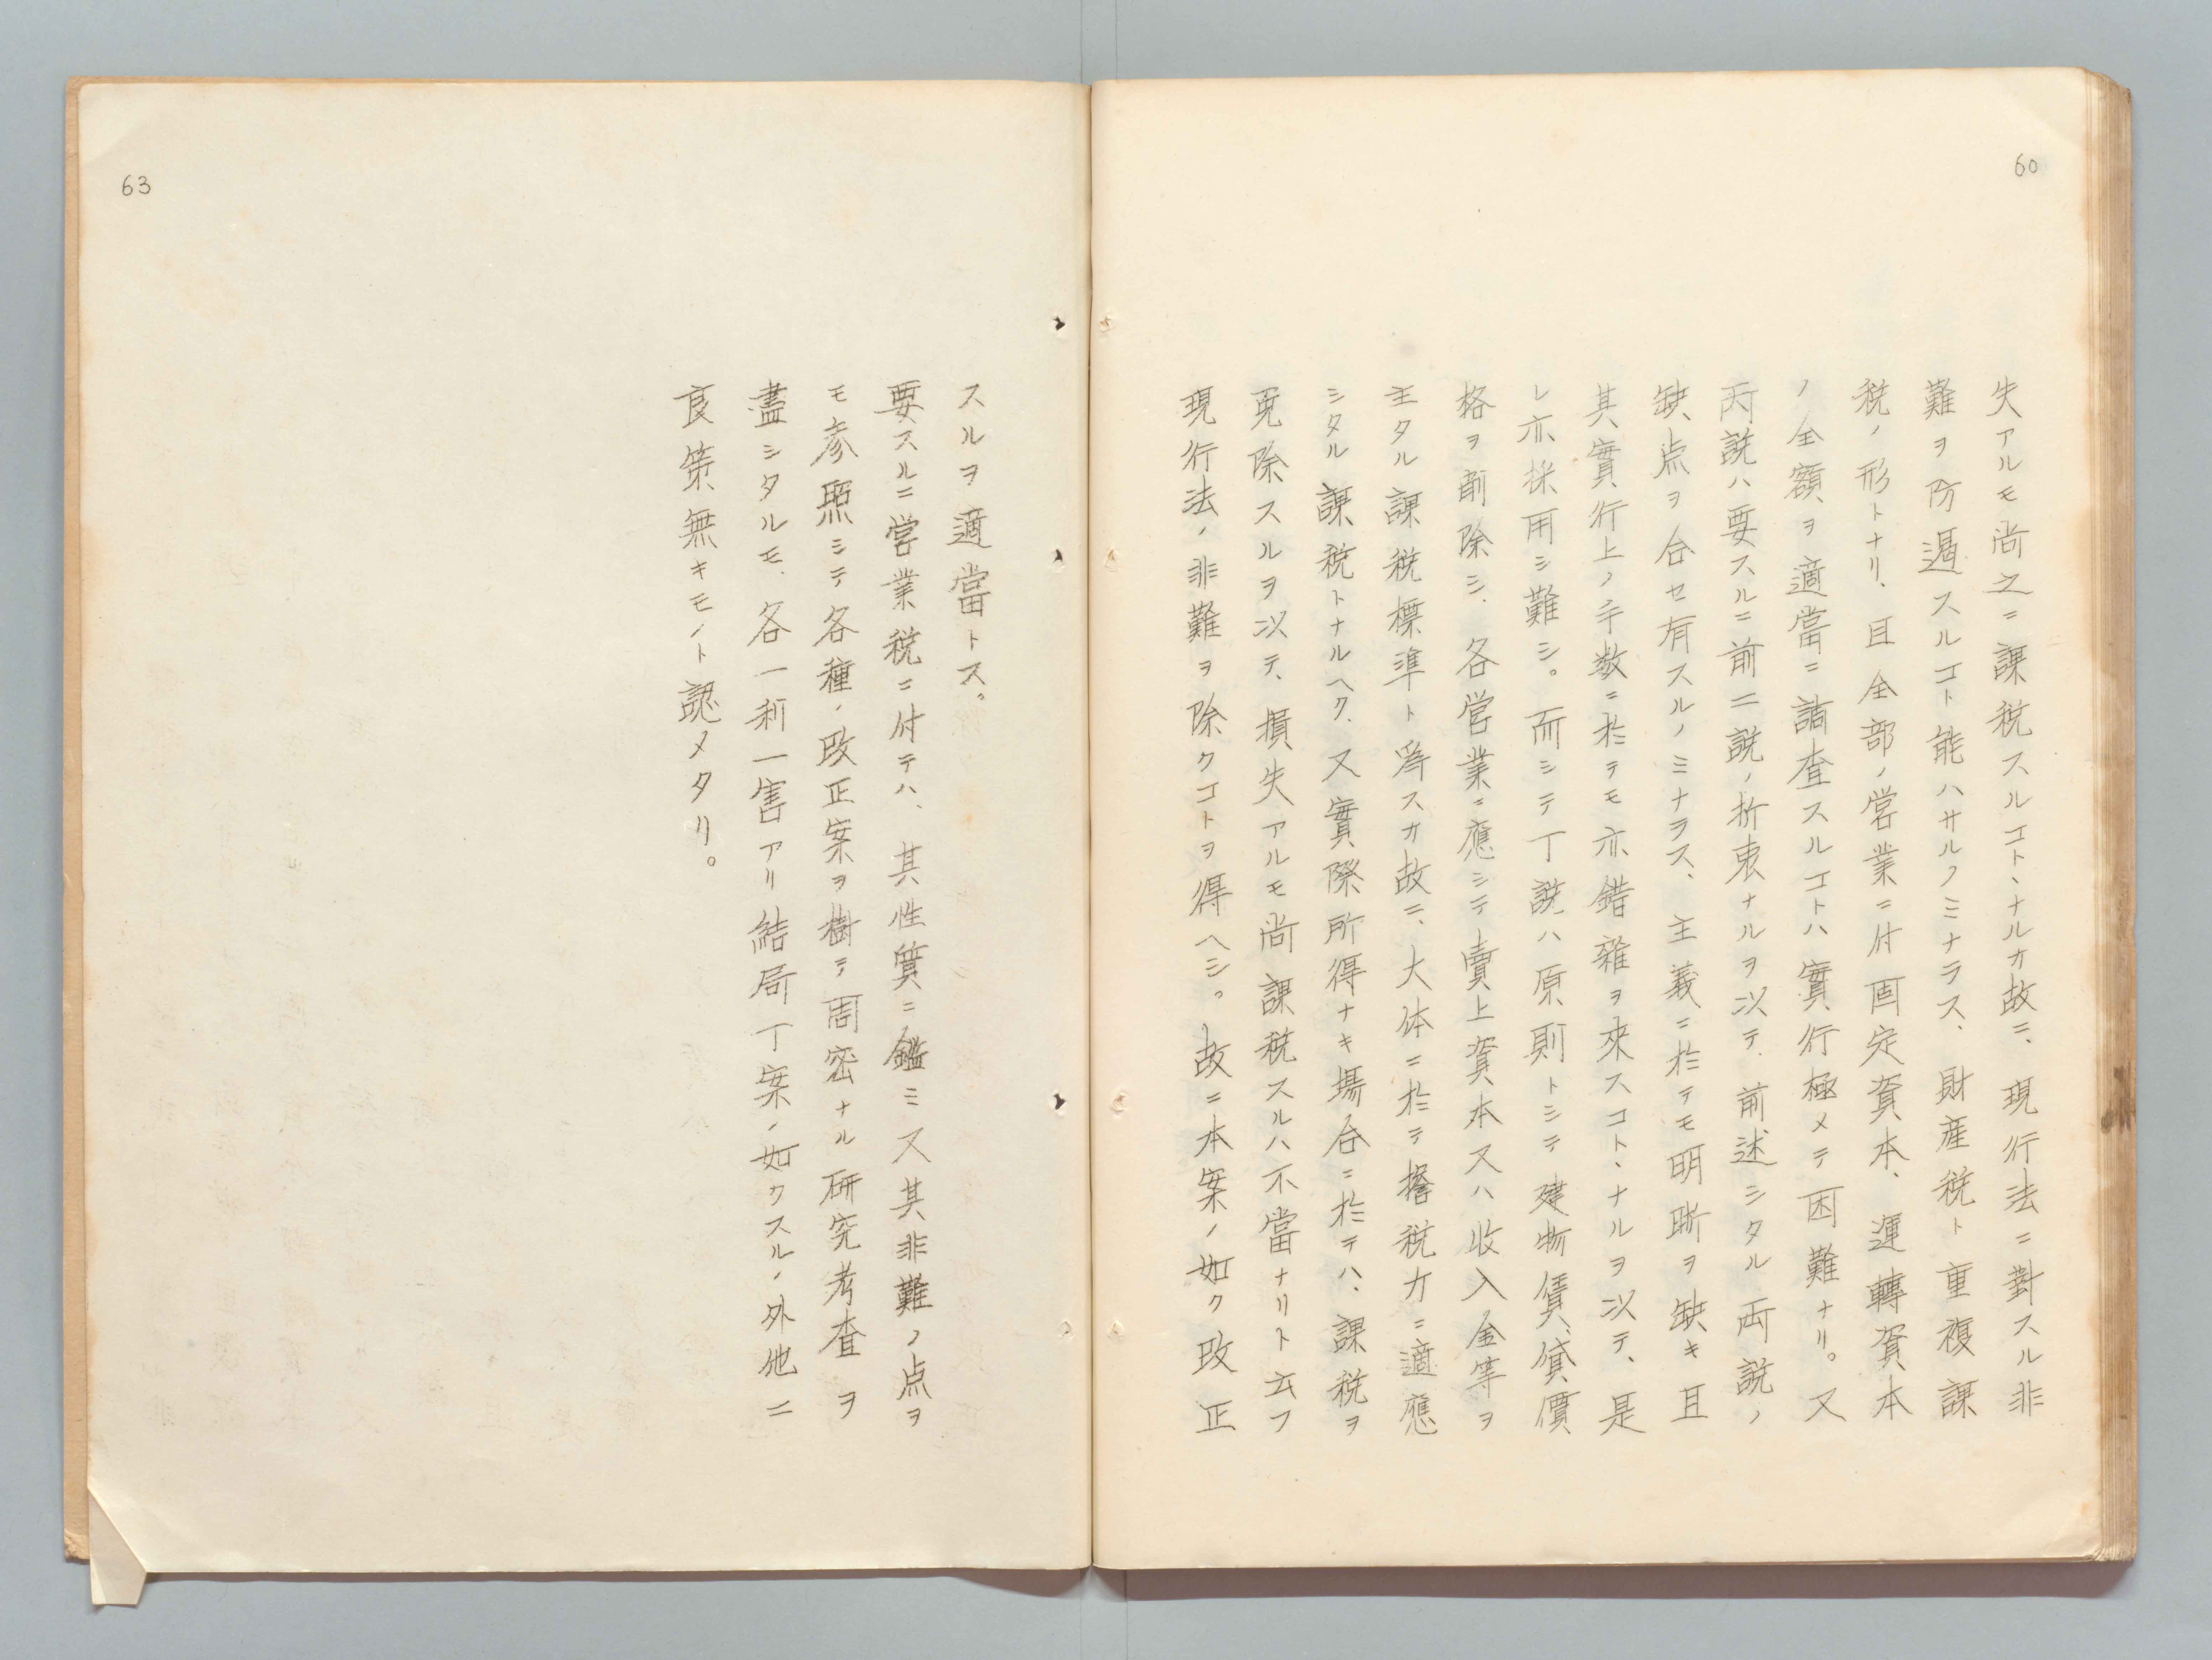 60
失アルモ尚之ニ課税スルコトヽナルカ故ニ、現行法ニ對スル非
難ヲ防遏スルコト能ハサルノミナラス、財産税ト重複課
税ノ形トナリ、且全部ノ営業ニ付固定資本、運轉資本
ノ全額ヲ適當ニ調査スルコトハ實行極メテ困難ナリ。又
丙説ハ要スルニ前二説ノ折衷ナルヲ以テ、前述シタル両説ノ
缺点ヲ合セ有スルノミナラス、主義ニ於テモ明晰ヲ缺キ且
其實行上ノ手数ニ於テモ亦錯雜ヲ來スコトヽナルヲ以テ、是
レ亦採用シ難シ。而シテ丁説ハ原則トシテ建物賃貸價
格ヲ削除シ、各営業ニ應シテ賣上資本又ハ收入金等ヲ
主タル課税標準ト爲スカ故ニ、大体ニ於テ擔税力ニ適應
シタル課税トナルヘク、又實際所得ナキ場合ニ於テハ、課税ヲ
免除スルヲ以テ、損失アルモ尚課税スルハ不當ナリト云フ
現行法ノ非難ヲ除クコトヲ得ヘシ。故ニ本案ノ如ク改正
63
スルヲ適當トス。
要スルニ営業税ニ付テハ、其性質ニ鑑ミ又其非難ノ点ヲ
モ参照シテ各種ノ改正案ヲ樹テ周密ナル研究考査ヲ
盡シタルモ、各一利一害アリ結局丁案ノ如クスルノ外他ニ
良策無キモノト認メタリ。